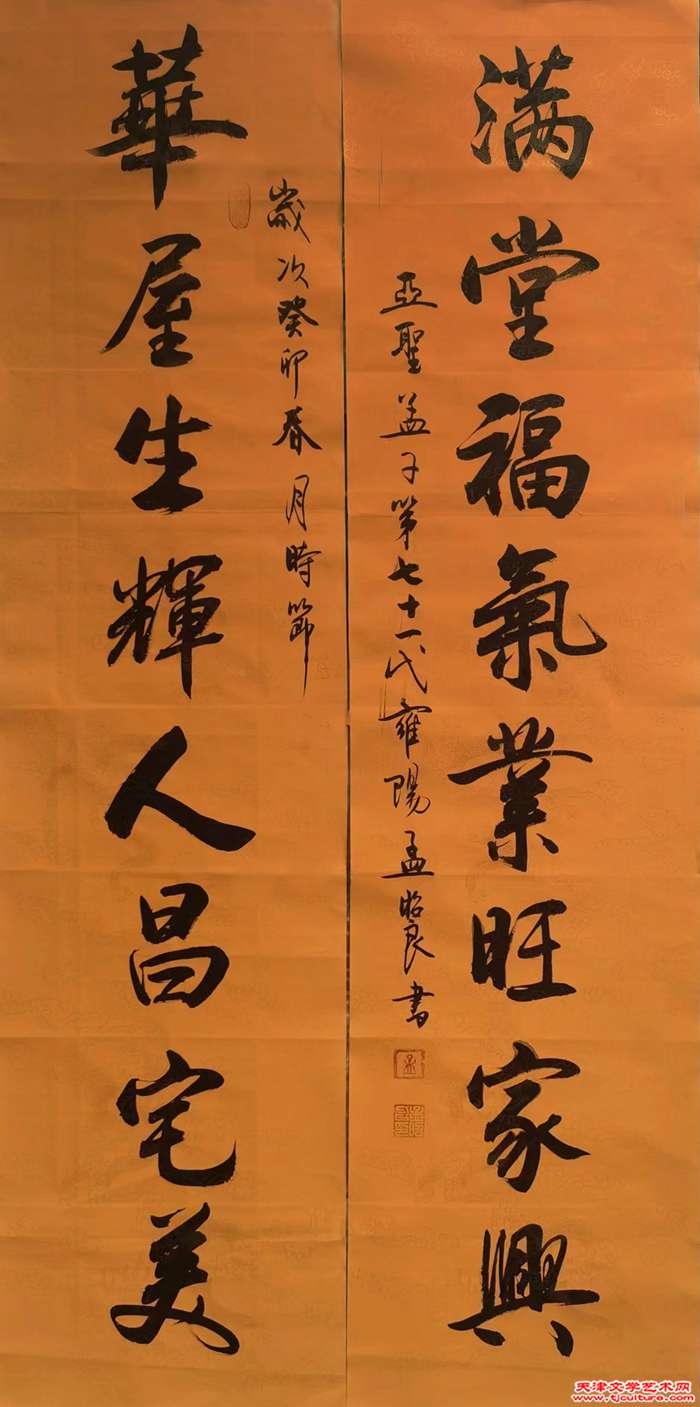 满堂福氣業旺家興
亞聖孟子第七十一代雍陽孟昭良書
歲次癸卯春月時節
華屋生輝人昌宅美
天津文学艺术网
www.tjculture.com